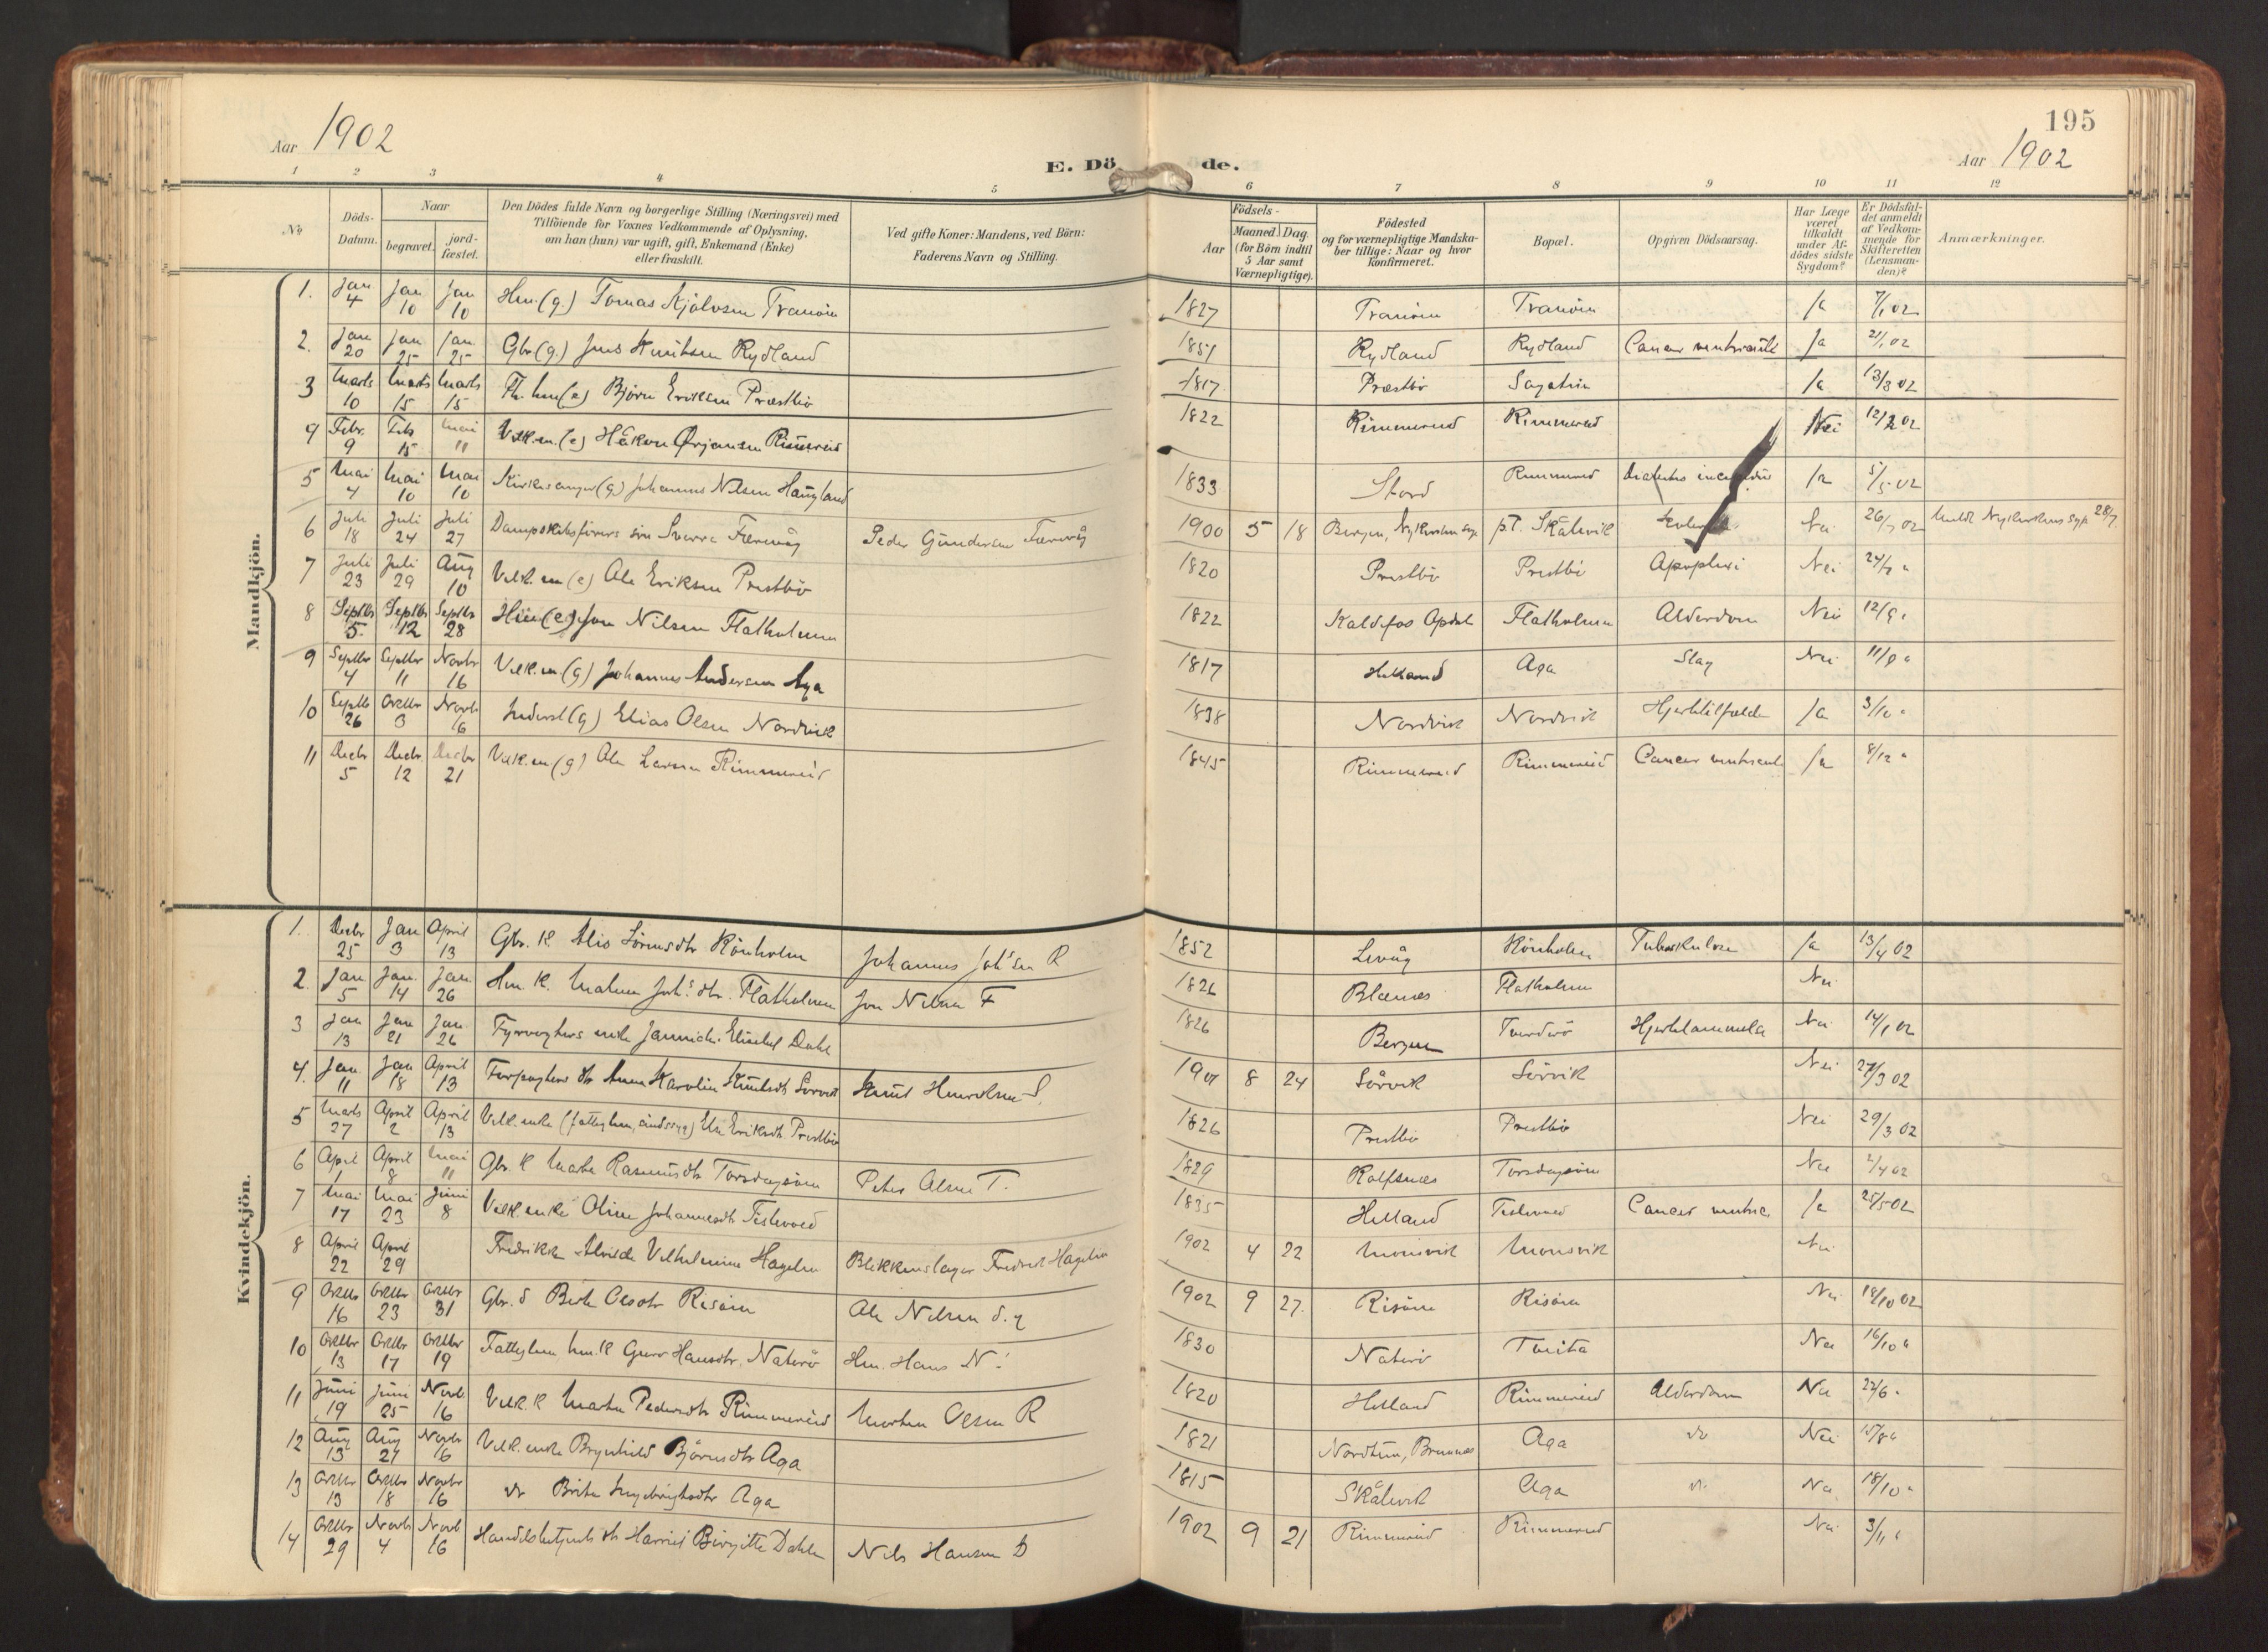 195
Aar 1902
Aar 1902
E. Dö de.
1 2 3 4 5 6 7 8 9 10 11 12
No
Döds-Datum.
Naar
begravet.
jord-fæstet.
Den Dödes fulde Navn og borgerlige Stilling (Næringsvei) med
Tilföiende for Voxnes Vedkommende af Oplysning,
om han (hun) var ugift, gift, Enkemand (Enke)
eller fraskilt.
Ved gifte Koner: Mandens, ved Börn:
Faderens Navn og Stilling.
Födsels-
Aar
Maaned Dag.
(for Börn indtil
5 Aar samt
Værnepligtige).
Födested
og for værnepligtige Mandska-
ber tillige: Naar og hvor
konfirmeret.
Bopæl.
Opgiven Dödsaarsag.
Har Læge
været
tilkaldt
under Af-
dödes sidste
Sygdom?
Er Dödsfal-
det anmeldt
af Vedkom-
mende for
Skifteretten
(Lensman-
den)?
Anmærkninger.
Mandkjön.
1. Jan 4 Jan 10 Jan 10 Hm. (g.) Tomas Kjølvsen Tranøin 1827 Tranøin Tranøin Ja 7/1 02
2. Jan 20 Jan 25 Jan 25 Gbr (g.) Jens Rydland 1851 Rydland Rydland Cancer ventriculi Ja 21/1 02
3 Marts 10 Marts 15 Marts 15 Fh. hm (e) Bjørn Eriksen Præstbø 1817 Præstbø Ja 13/3 02
4 Febr. 9 Feb 15 Mai 11 Vilk.m. (e) Håkon Ørjansen Rimmereid 1822 Rimmereid Rimmereid Nei 12/2 02
5 Mai 4 Mai 10 Mai 10 Kirkesanger (g.) Johannes Nilsen Haugland 1833 Stord Rimmereid Ja 5/5 02
6 Juli 18 Juli 24 Juli 27 Dampskibsförers sön Sverre Færevåg Peder Gundersen Færevåg 1900 5 18 Bergen, Nykirken p.t. Skålevik Nei 26/7 02 Meldt Nykirkens 28/7
7 Juli 23 Juli 29 Aug 10 Vilk.m (e) Ole Eriksen Prestbø 1820 Prestbø Prestbø Apoplexi Nei 24/7 "
8 Septbr 5. Septbr 12 Septbr 28 Hm (e) Jon Nilsen Flatholmen 1822 Kaldfos Opdal Flatholmen Alderdom Nei 12/9 "
9 Septbr 4 Septbr 11 Novbr 16 Vilk.m (g) Johannes Andersen Aga 1817 Helland Aga Slag Nei 11/9 "
10 Septbr 26 Octbr 3 Novb 16 Inderst (g) Elias Olsen Nordvik 1838 Nordvik Nordvik Hjertetilfælde Ja 3/10 "
11 Decbr 5 Decbr. 12 Decbr 21 Vilk.m (g) Ole Larsen Rimmereid 1845 Rimmereid Rimmereid Cancer ventriculi Ja 8/12 "
Kvindekjön.
1. Decbr 25 Jan 3 April 13 Gbr. k Rönholm Johannes Joh'sen R 1852 Levåg Rönholm Tuberkulose Ja 13/4 02
2. Jan 5 Jan. 14 Jan 26 Hm. k. Malene Joh's dtr. Flatholmen Jon Nilsen F 1826 Blænes Flatholmen Nei
3 Jan 13 Jan 21 Jan. 26 Fyrvogters enke Jannicke Elisabet Dahl 1826 Bergen Hjertelammelse Nei 14/1 02
4. Jan. 11 Jan 18 April 13 dtr Anna Karoline Knutsdtr Sørvik Knut Henriksen S. 1901 8 24 Sørvik Sørvik Nei 27/3 02
5 Marts 27 April 2 April 13 Vilk. enke Else Eriksdtr. Prestbø 1826 Prestbø Prestbø Nei 29/3 02
6 April 1 April 8 Mai 11 Gbr. k Marta Rasmusdtr Torsdagsøien Peter Olsen T. 1829 Rolfsnes Torsdagsøien Nei 2/4 02
7 Mai 17 Mai 23 Juni 8 Vilk. enke Oline Johannesdtr Teslevoed 1835 Helland Teslevoed Cancer ventric. Ja 25/5 02
8 April 22 April 29 Fredrikke Alvilde Vilhelmine Hagelin Blikkenslager Fredrik Hagelin 1902 4 22 Monsvik Monsvik Nei
9 Octbr 16 Octbr 23 Octbr 31 Gbr. d Berta Olsdtr Risøien Ole Nilsen 1902 9 27. Risøien Risøien Nei 18/10 02
10 Octbr 13 Octbr 17 Octbr 19 Fattiglem hm. k Guro Hansdtr. Naterø Hm. Hans N. 1830 Naterø Tveita Nei 16/10 "
11 Juni 19 Juni 25 Novb. 16 Vilk. k Marta Pedersdtr Rimmereid Morten Olsen R 1820 Helland Rimmereid Alderdom Nei 22/6 "
12 Aug 13 Aug 21 Novbr 16 Vilk. enke Brynhild Bjørnsdtr Aga 1821 Nordtun, Bremnes Aga do Nei 15/8 "
13 Octbr 13 Octbr 18 Novbr 16 do Brita Ingebrigtsdtr Aga 1815 Skålevik Aga do Nei 18/10 "
14 Octbr 29 Novb 4 Novb. 16 Handelsbetjents dtr Harriet Birgitte Dahle Nils Hansen D 1902 9 21 Rimmereid Rimmereid Nei 3/11 "